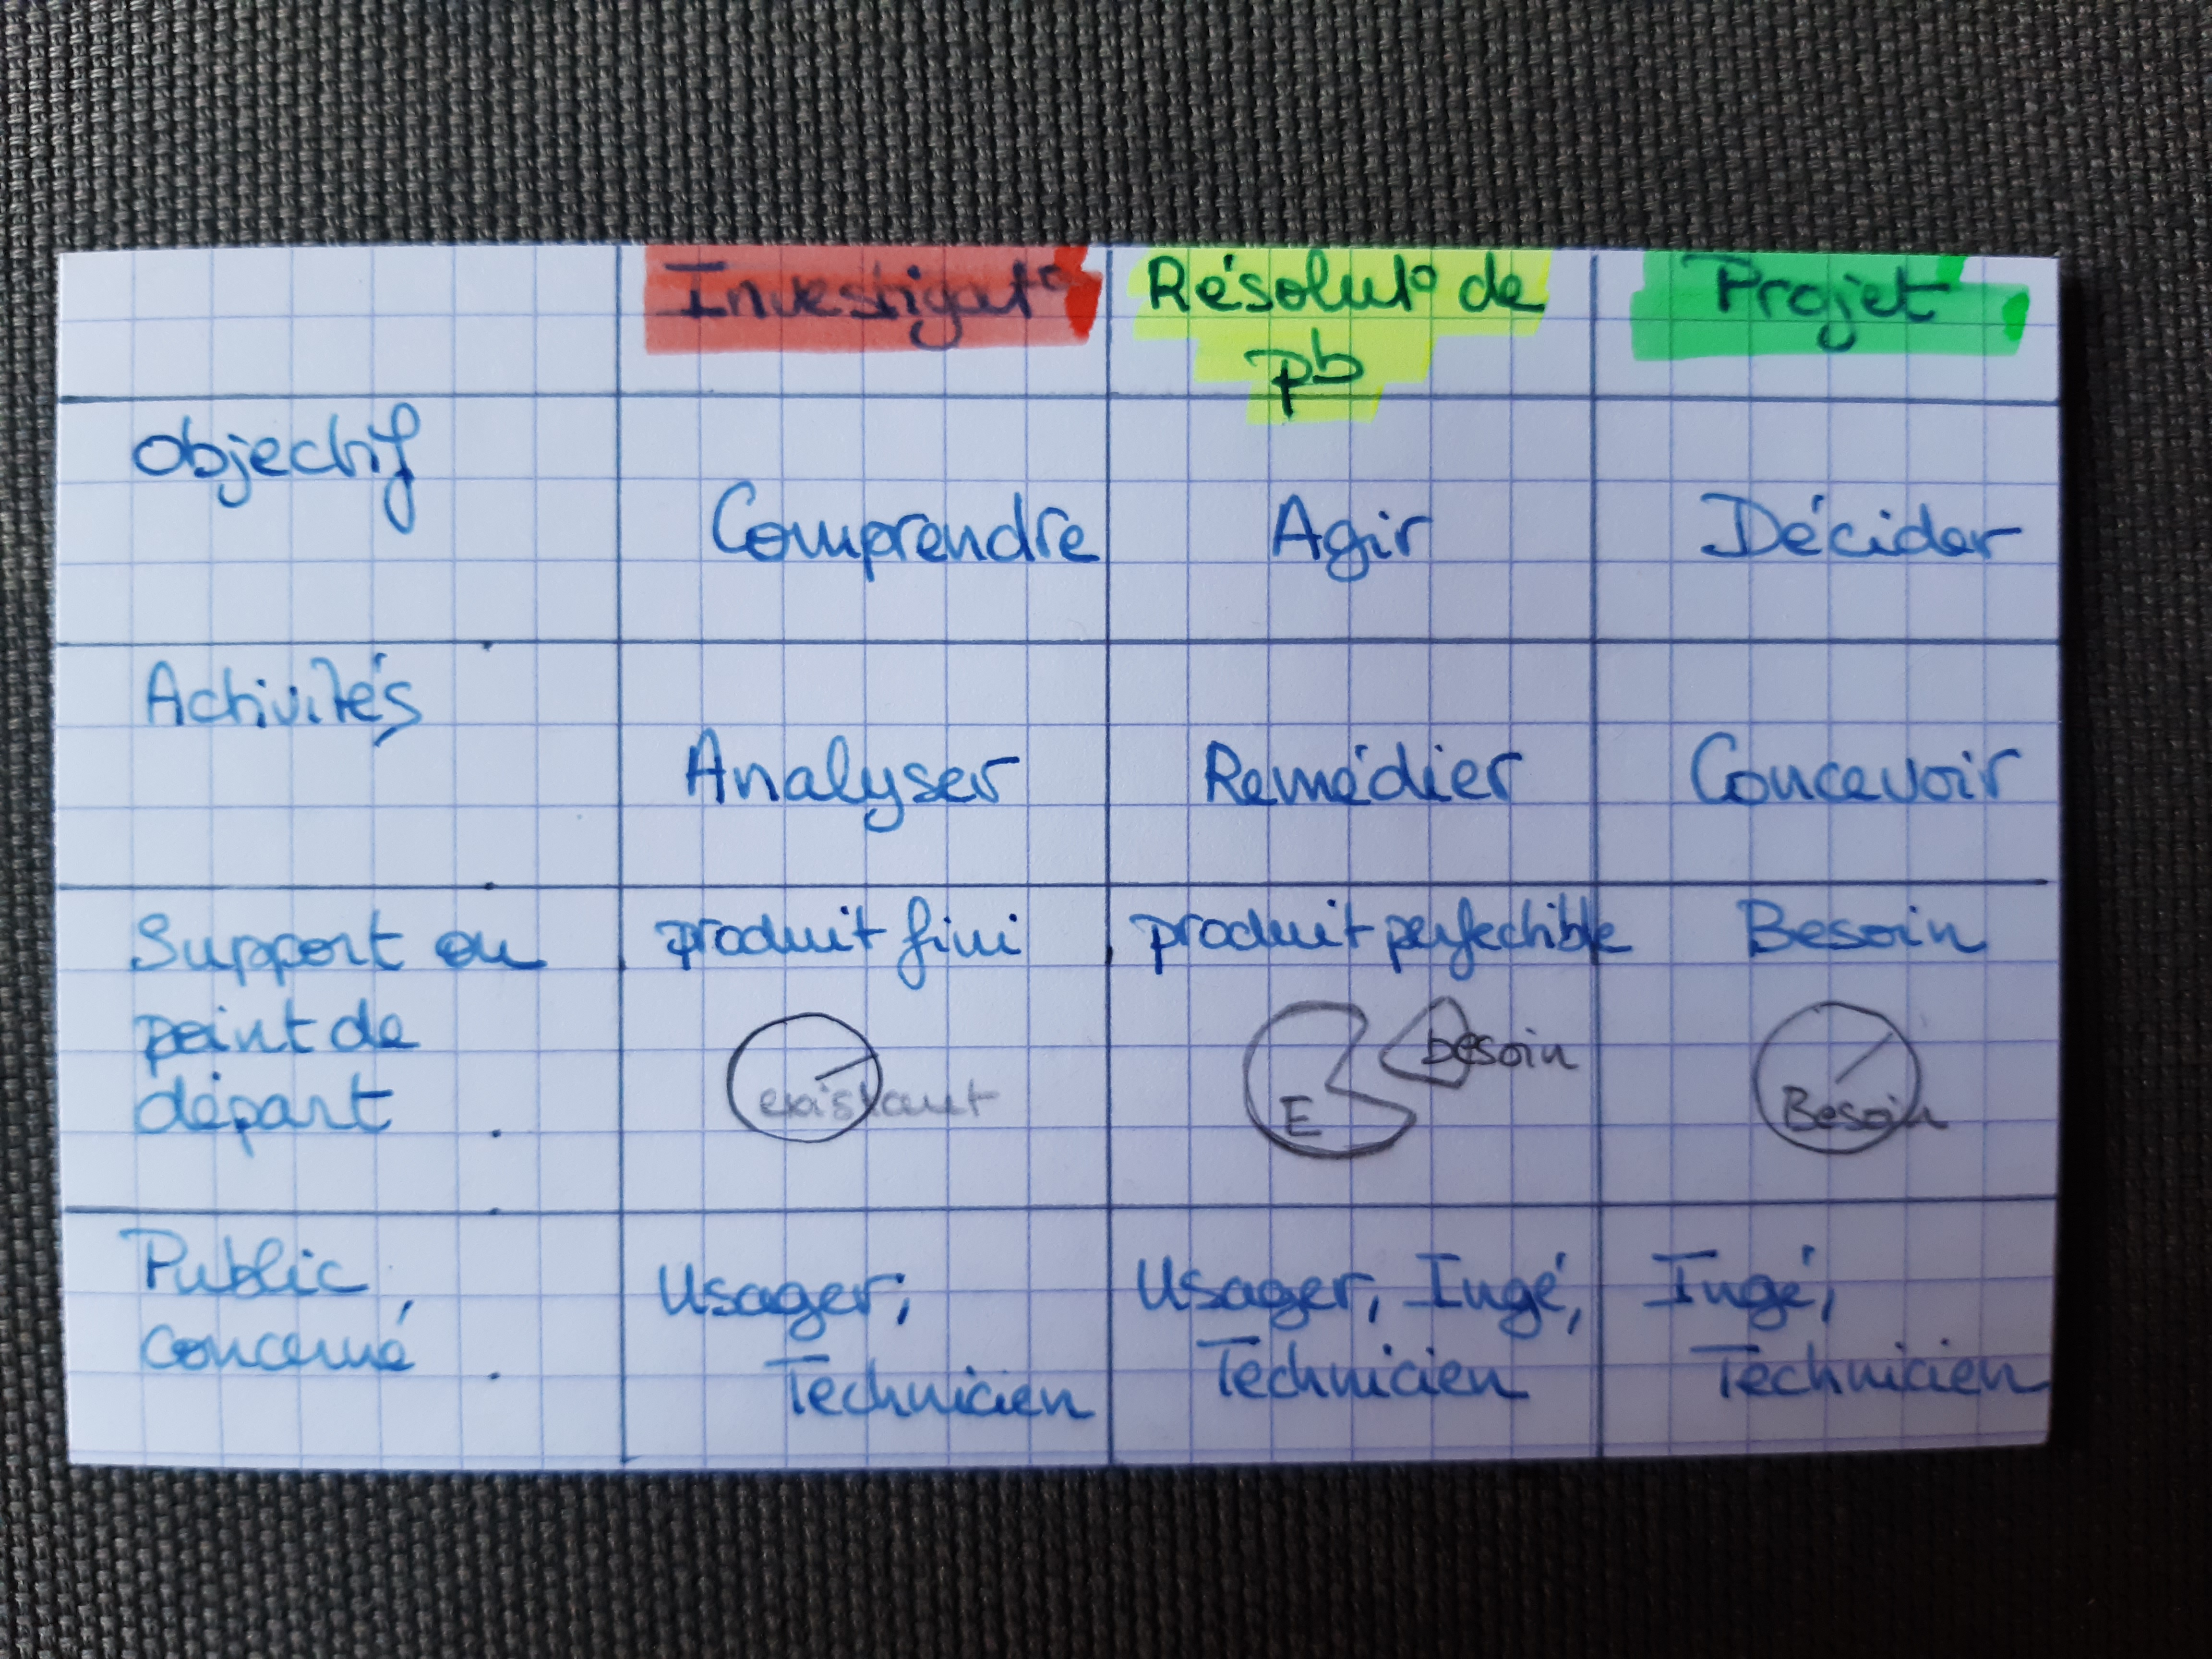 Investigat°
Résolut° de
pb
Projet
Objectif
Comprendre
Agir
Décider
Activités
Analyser
Remédier
Concevoir
Support ou
point de
départ
produit fini
existant
produit perfectible
E
besoin
Besoin
Besoin
Public
concerné
Usager,
Technicien
Usager, Ingé,
Technicien
Ingé,
Technicien